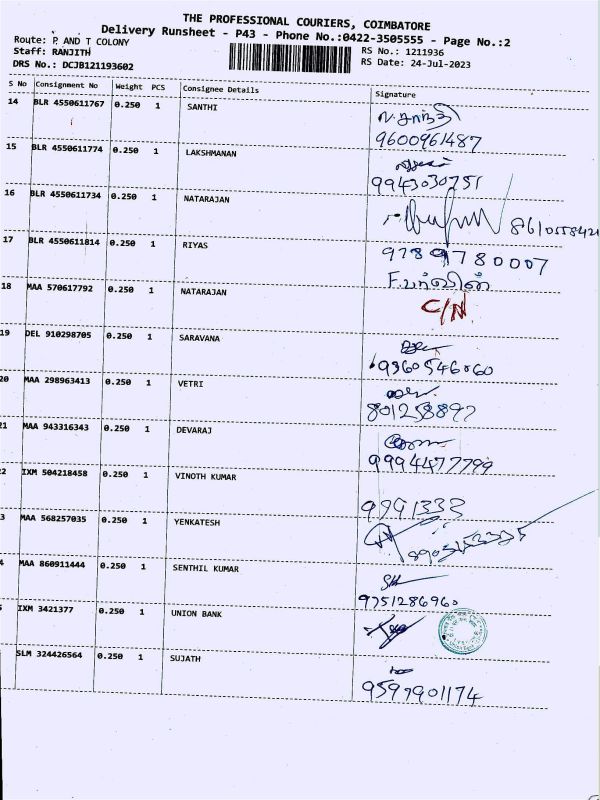 THE PROFESSIONAL COURIERS, COIMBATORE
Delivery Runsheet - P43 - Phone No.:0422-3505555 - Page No.:2
Route: P AND T COLONY
RS No.: 1211936
Staff: RANJITH
RS Date: 24-Jul-2023
DRS No.: DCJB121193602
S No Consignment No Weight PCS Consignee Details Signature
14 BLR 4550611767 0.250 1 SANTHI
9600961487
15 BLR 4550611774 0.250 1 LAKSHMANAN
9943030751
16 BLR 4550611734 0.250 1 NATARAJAN
8610558421
17 BLR 4550611814 0.250 1 RIYAS
9789780007
18 MAA 570617792 0.250 1 NATARAJAN
C/N
19 DEL 910298705 0.250 1 SARAVANA
9360546060
20 MAA 298963413 0.250 1 VETRI
801258897
21 MAA 943316343 0.250 1 DEVARAJ
9994477799
2 IXM 504218458 0.250 1 VINOTH KUMAR
9991333
3 MAA 568257035 0.250 1 YENKATESH
4 MAA 860911444 0.250 1 SENTHIL KUMAR
9751286960
5 IXM 3421377 0.250 1 UNION BANK
SLM 324426564 0.250 1 SUJATH
9597901174